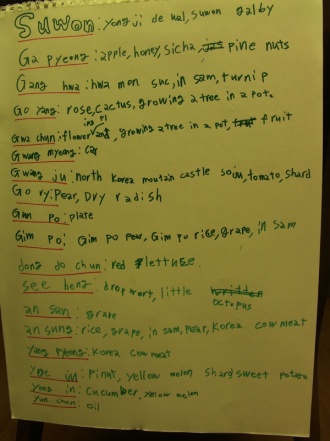 Suwon: yong ji de kal, suwon galby
Ga pyeong: apple, honey, sicha, pine nuts
Gang hwa: hwa mon suc, in sam, turnip
Go yang: rose, cactus, growing a tree in a pot.
Gwa chun: flower ing pl and, growing a tree in a pot, fruit
Gwang myeong: Car
Gwang ju: north Korea moutain castle soju, tomato, shard
Go ry: Pear, Dry radish
Gun po: plate
Gim po: Gim po pear, Gim po rice, grape, in sam
dong do chun: red lettuce.
see heng: dropwort, little octopus
an san: grape
an sung: rice, grape, in sam, pear, Korea cow meat
Yang pyeong: Korea cow meat
yoe ju: pinut, yellow melon shard sweet potato
Yong in: cucumber, yellow melon
Yun chun: oil